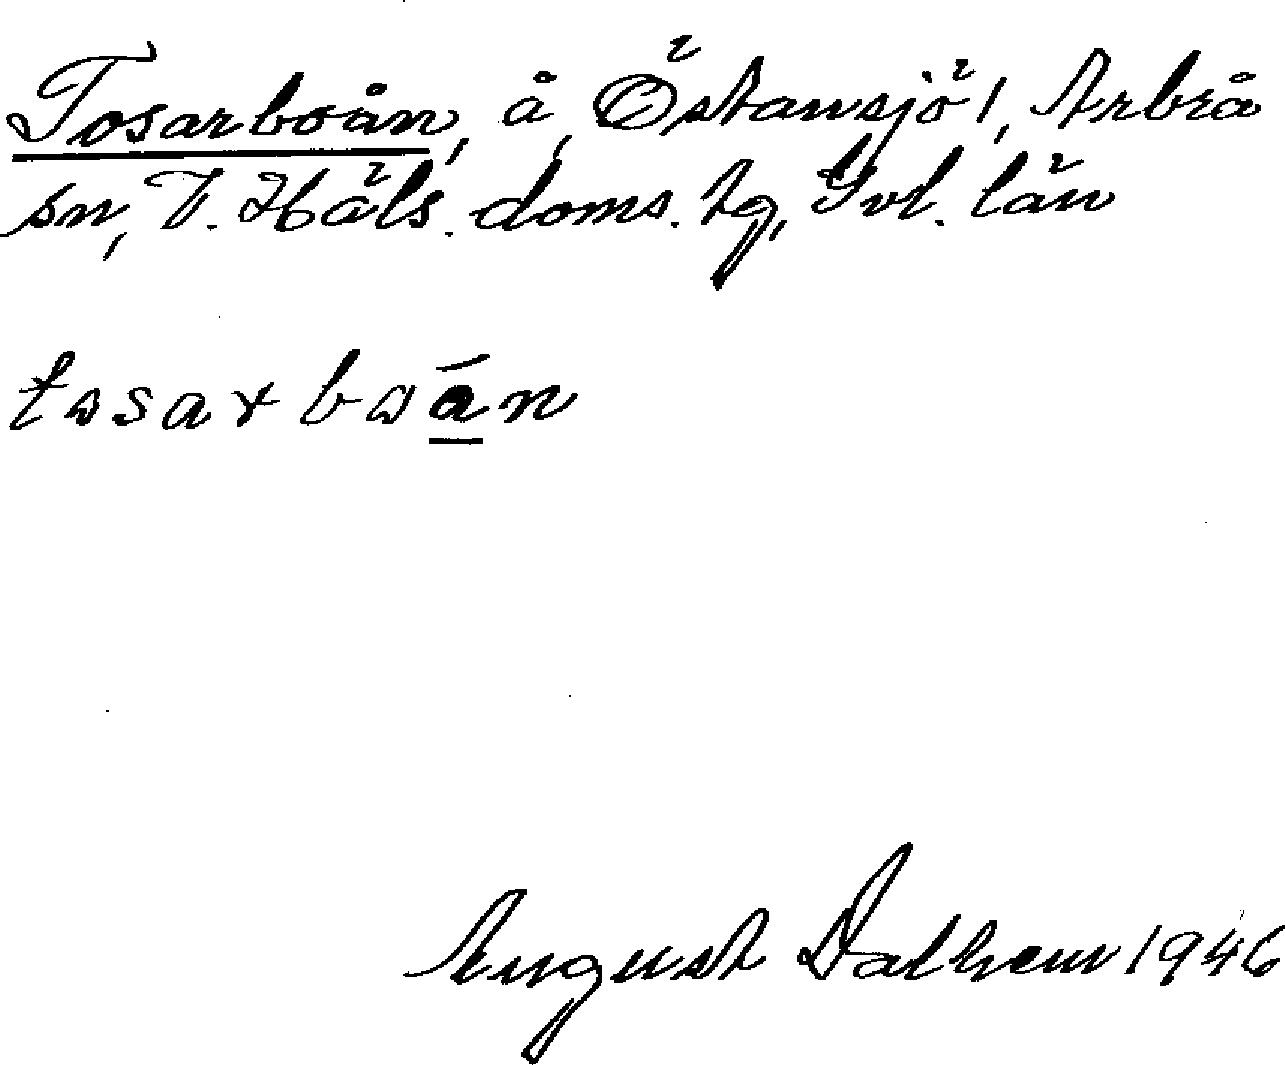 Tosarboån, å, Östansjö 1, Arbrå
sn, V. Häls. doms. tg, Gvl. län
tosarboán
August Dalhem 1946